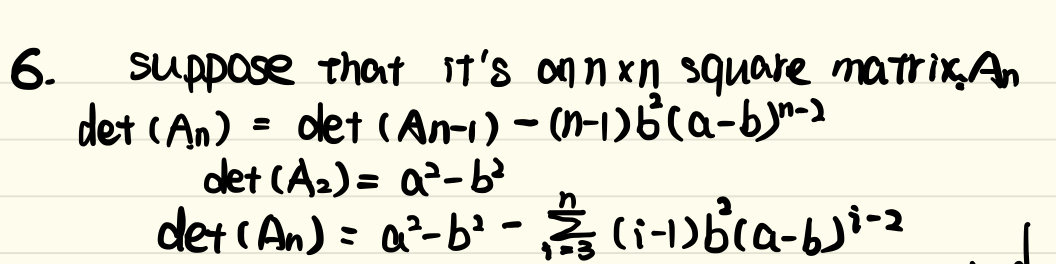 6. suppose that it's an n×n square matrix. An
det (An) = det (An-1) - (n-1)b²(a-b)ⁿ⁻²
det (A₂) = a²-b²
det (An) = a²-b² - ∑ⁿᵢ₌₃ (i-1)b²(a-b)ⁱ⁻²